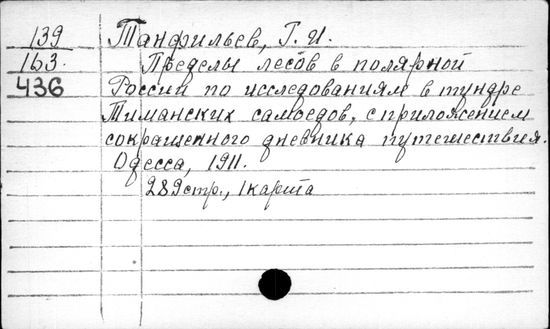 139 Танфильев, Г. И.
163. Пределы лесов в полярной
436 России по исследованиям в тундре
Тиманских самоедов, с приложением
сокращенного дневника путешествия.
Одесса, 1911.
289 стр., 1 карта